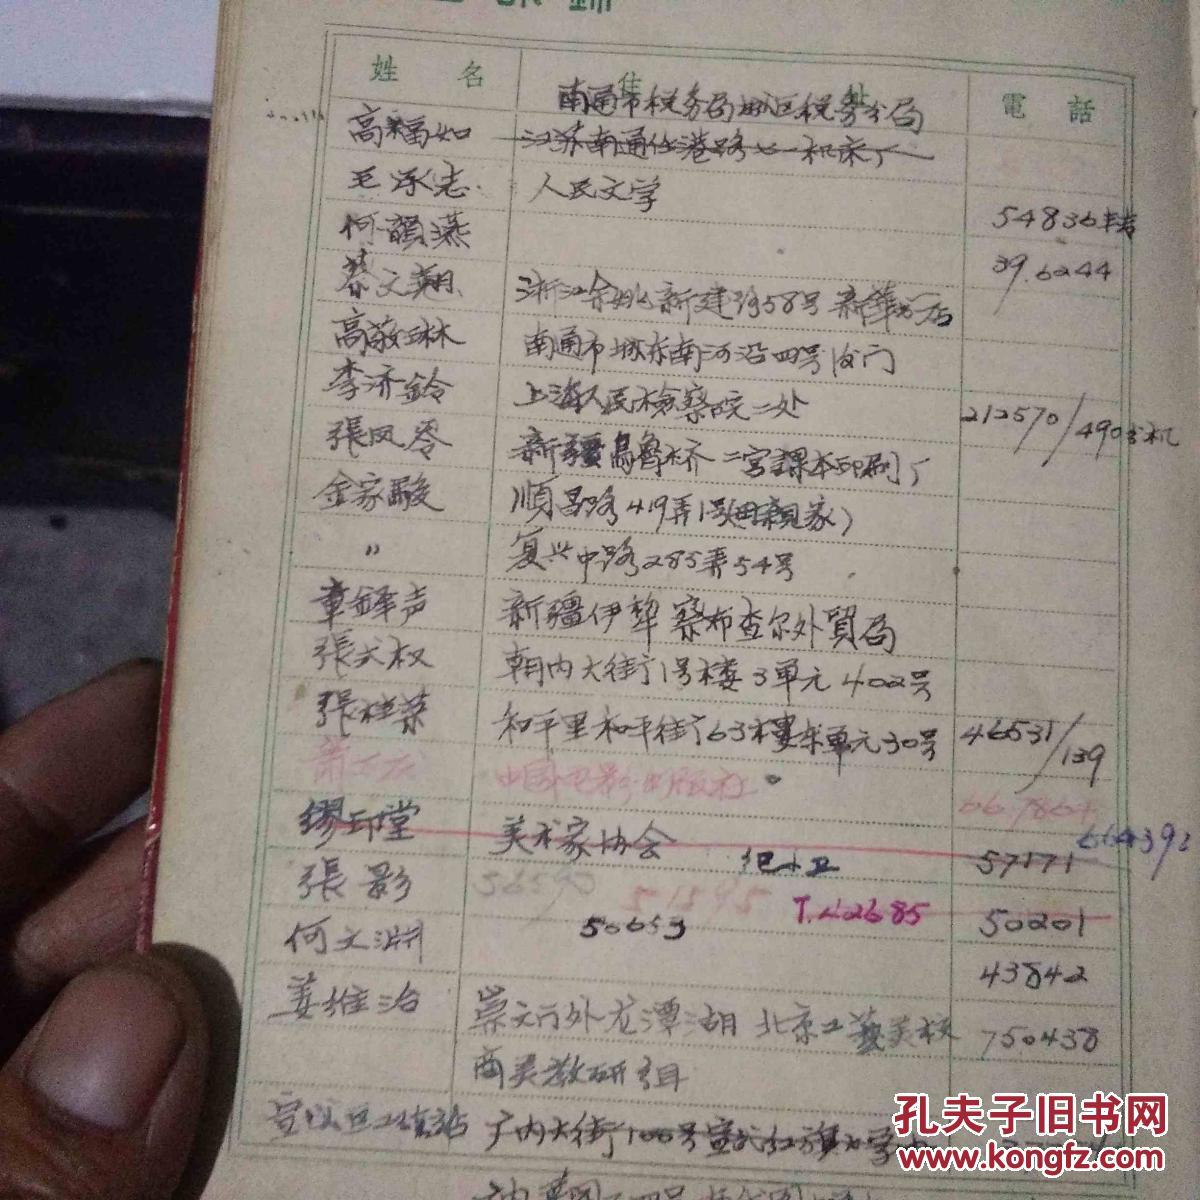 姓 名 住 址 電 話
南通市税务局城区税务分局
高福如 江苏南通任港路七一机床厂
毛承志 人民文学 54836转
何韻燕 39.6244
蔡文翔 浙江余姚新建路58号 新華书店
高敬琳 南通市城东南河沿四号后门
李济鈴 上海人民檢察院二处 212570/490分机
張凤零 新疆烏魯木齐 二宫課本印刷厂
金家駿 順昌路419弄1号(母親家)
〃 复兴中路285弄54号
章鋒声 新疆伊犂 察布查尔外貿局
張文权 朝内大街1号楼3單元402号
張桂荣 和平里和平街63楼东單元30号 46531/139
中国电影出版社 66.7864
繆印堂 美术家协会 57171 664392
張影 56590 51595 T.42685 50201
何文渊 50653 43842
姜維治 崇文门外龙潭湖 北京工藝美校 750438
商美教研组
广内大街100号宣武红旗
孔夫子旧书网
www.kongfz.com